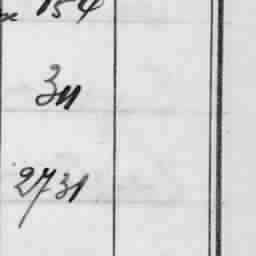 154
311
2731